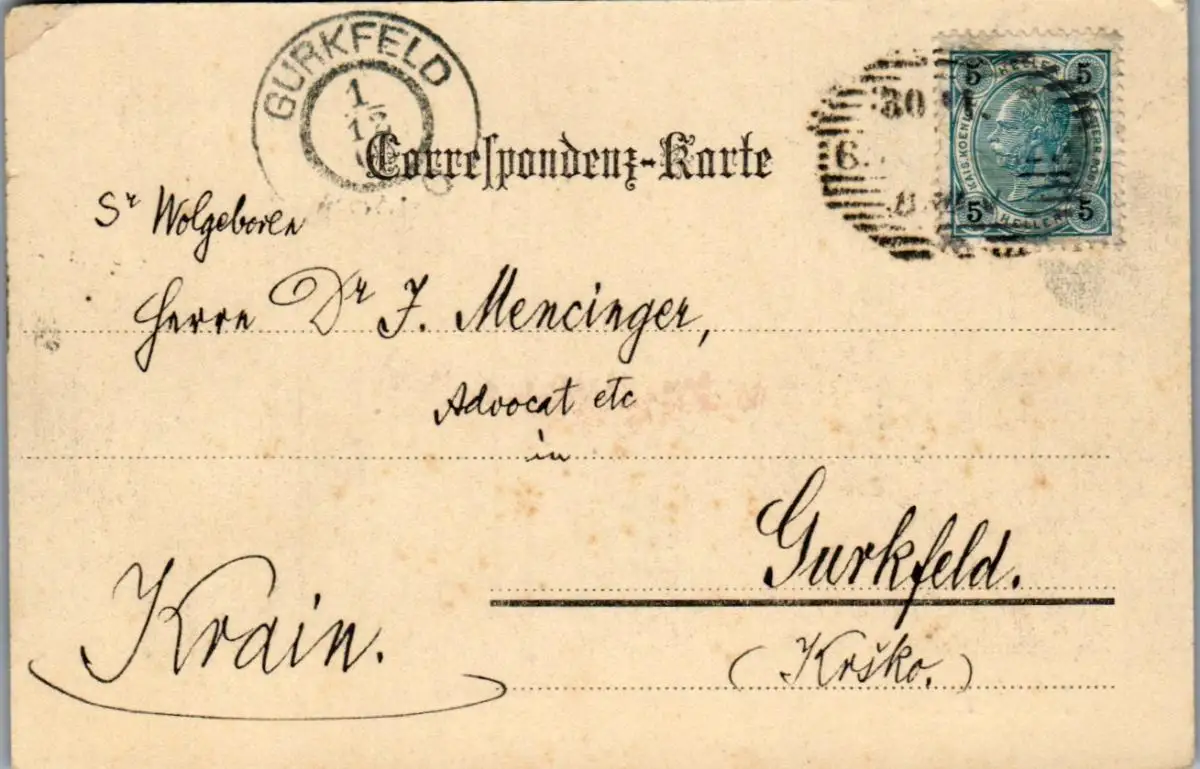 GURKFELD
1
12
Correspondenz-Karte
30
6
5 5
5 5
HELLER
Sr Wolgeboren
Herrn Dr J. Mencinger,
Advocat etc
in
Gurkfeld.
Krain.
(Krško.)